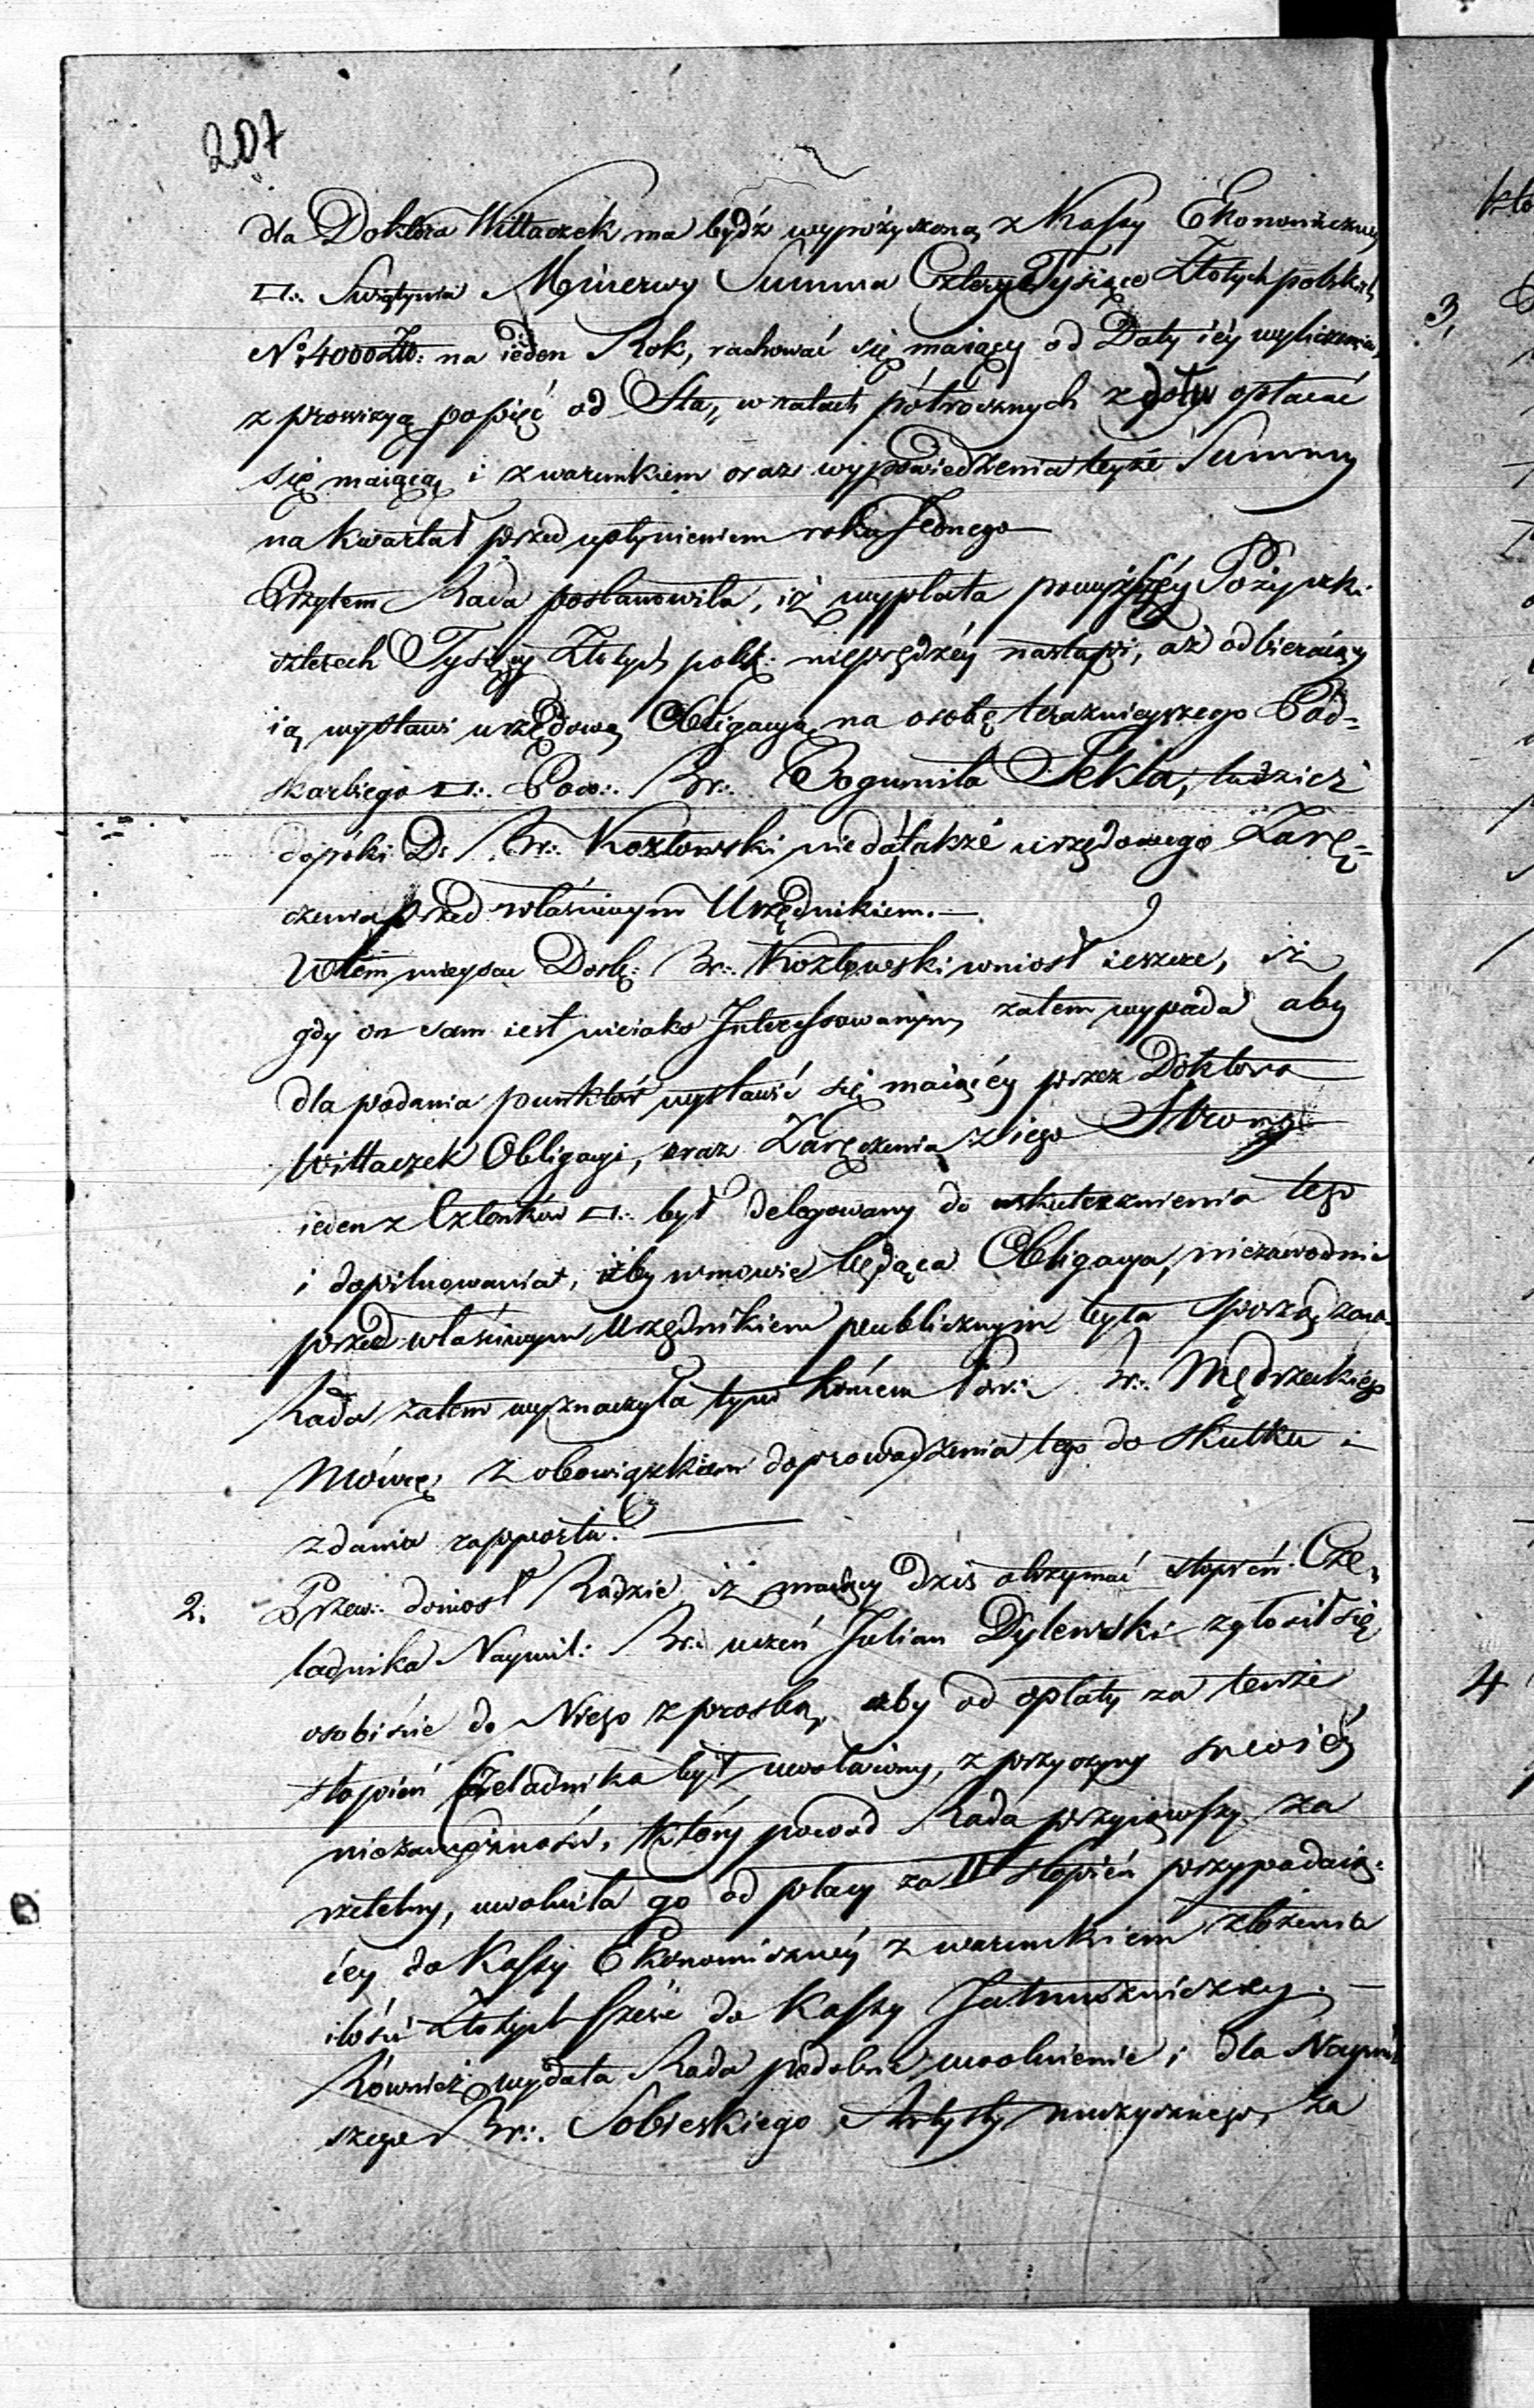 207
dla Doktora Wittaczek ma bydź wypożyczoną z Kassy Ekonomiczney
▭∴ Swiątynia Minerwy Summa Cztery Tysiące Złotych polskich
No 4000 Zło: na ieden Rok, rachować się maiący od Daty iéy wyliczenia,
z prowizyą po pięć od Sta, w ratach półrocznych z dołu opłacać
się maiącą, i z warunkiem oraz wypowiedzenia teyże Summy
na kwartał przed upłynieniem roku Jednego
Przytem Rada postanowiła, iż wypłata powyższéy Pożyczki
czterech Tysięcy Złotych polsk: nieprędzéy nastąpi, aż odbieraiący
ią wystawi urzędową Obligacyą na osobę teraznieyszego Pod=
skarbiego ▭∴ Pow∴ Br∴ Bogumiła Tekla, tudzież
dopóki D: Br∴ Kozłowski nieda także urzędowego Zarę=
czenia przed właściwym Urzędnikiem.—
W tém mieyscu Dosk: Br∴ Kozłowski wniosł ieszcze, iż
gdy on sam iest nieiako Interessowanym, zatem wypada aby
dla podania punktów wystawić się maiącéy przez Doktora
Wittaczek Obligacyi, oraz Zaręczenia z iego Strony
ieden z Członków ▭∴ był delegowany do uskutecznienia tego
i dopilnowania, iżby w mowie będąca Obligacya, niezawodnie
przed właściwym Urzędnikiem publicznym była sporządzona
Rada zatem wyznaczyła tym końcem Pow∴ Br∴ Mędrzeckiego
Mówcę z obowiązkiem doprowadzenia tego do skutku i
zdania rapportu.
2. Przew∴ doniosł Radzie, iż maiący dziś otrzymać stopień Cze=
ladnika Naymil: Br∴ uczeń Julian Dylewski zgłosił się
osobiście do Niego z prosbą, aby od opłaty za tenże
stopień Czeladnika był uwolniony, z przyczyny swoiéy
niezamożności, który powod Rada przyiąwszy za
rzetelny, uwolniła go od płacy za II stopień przypadaią=
céy do Kassy Ekonomicznéy z warunkiem złożenia
ilości Złotych sześć do Kassy Jałmużniczey. —
Również wydała Rada podobne uwolnienie i dla Naymil
szego Br∴ Sobieskiego Artysty muzycznego, za
3,
4